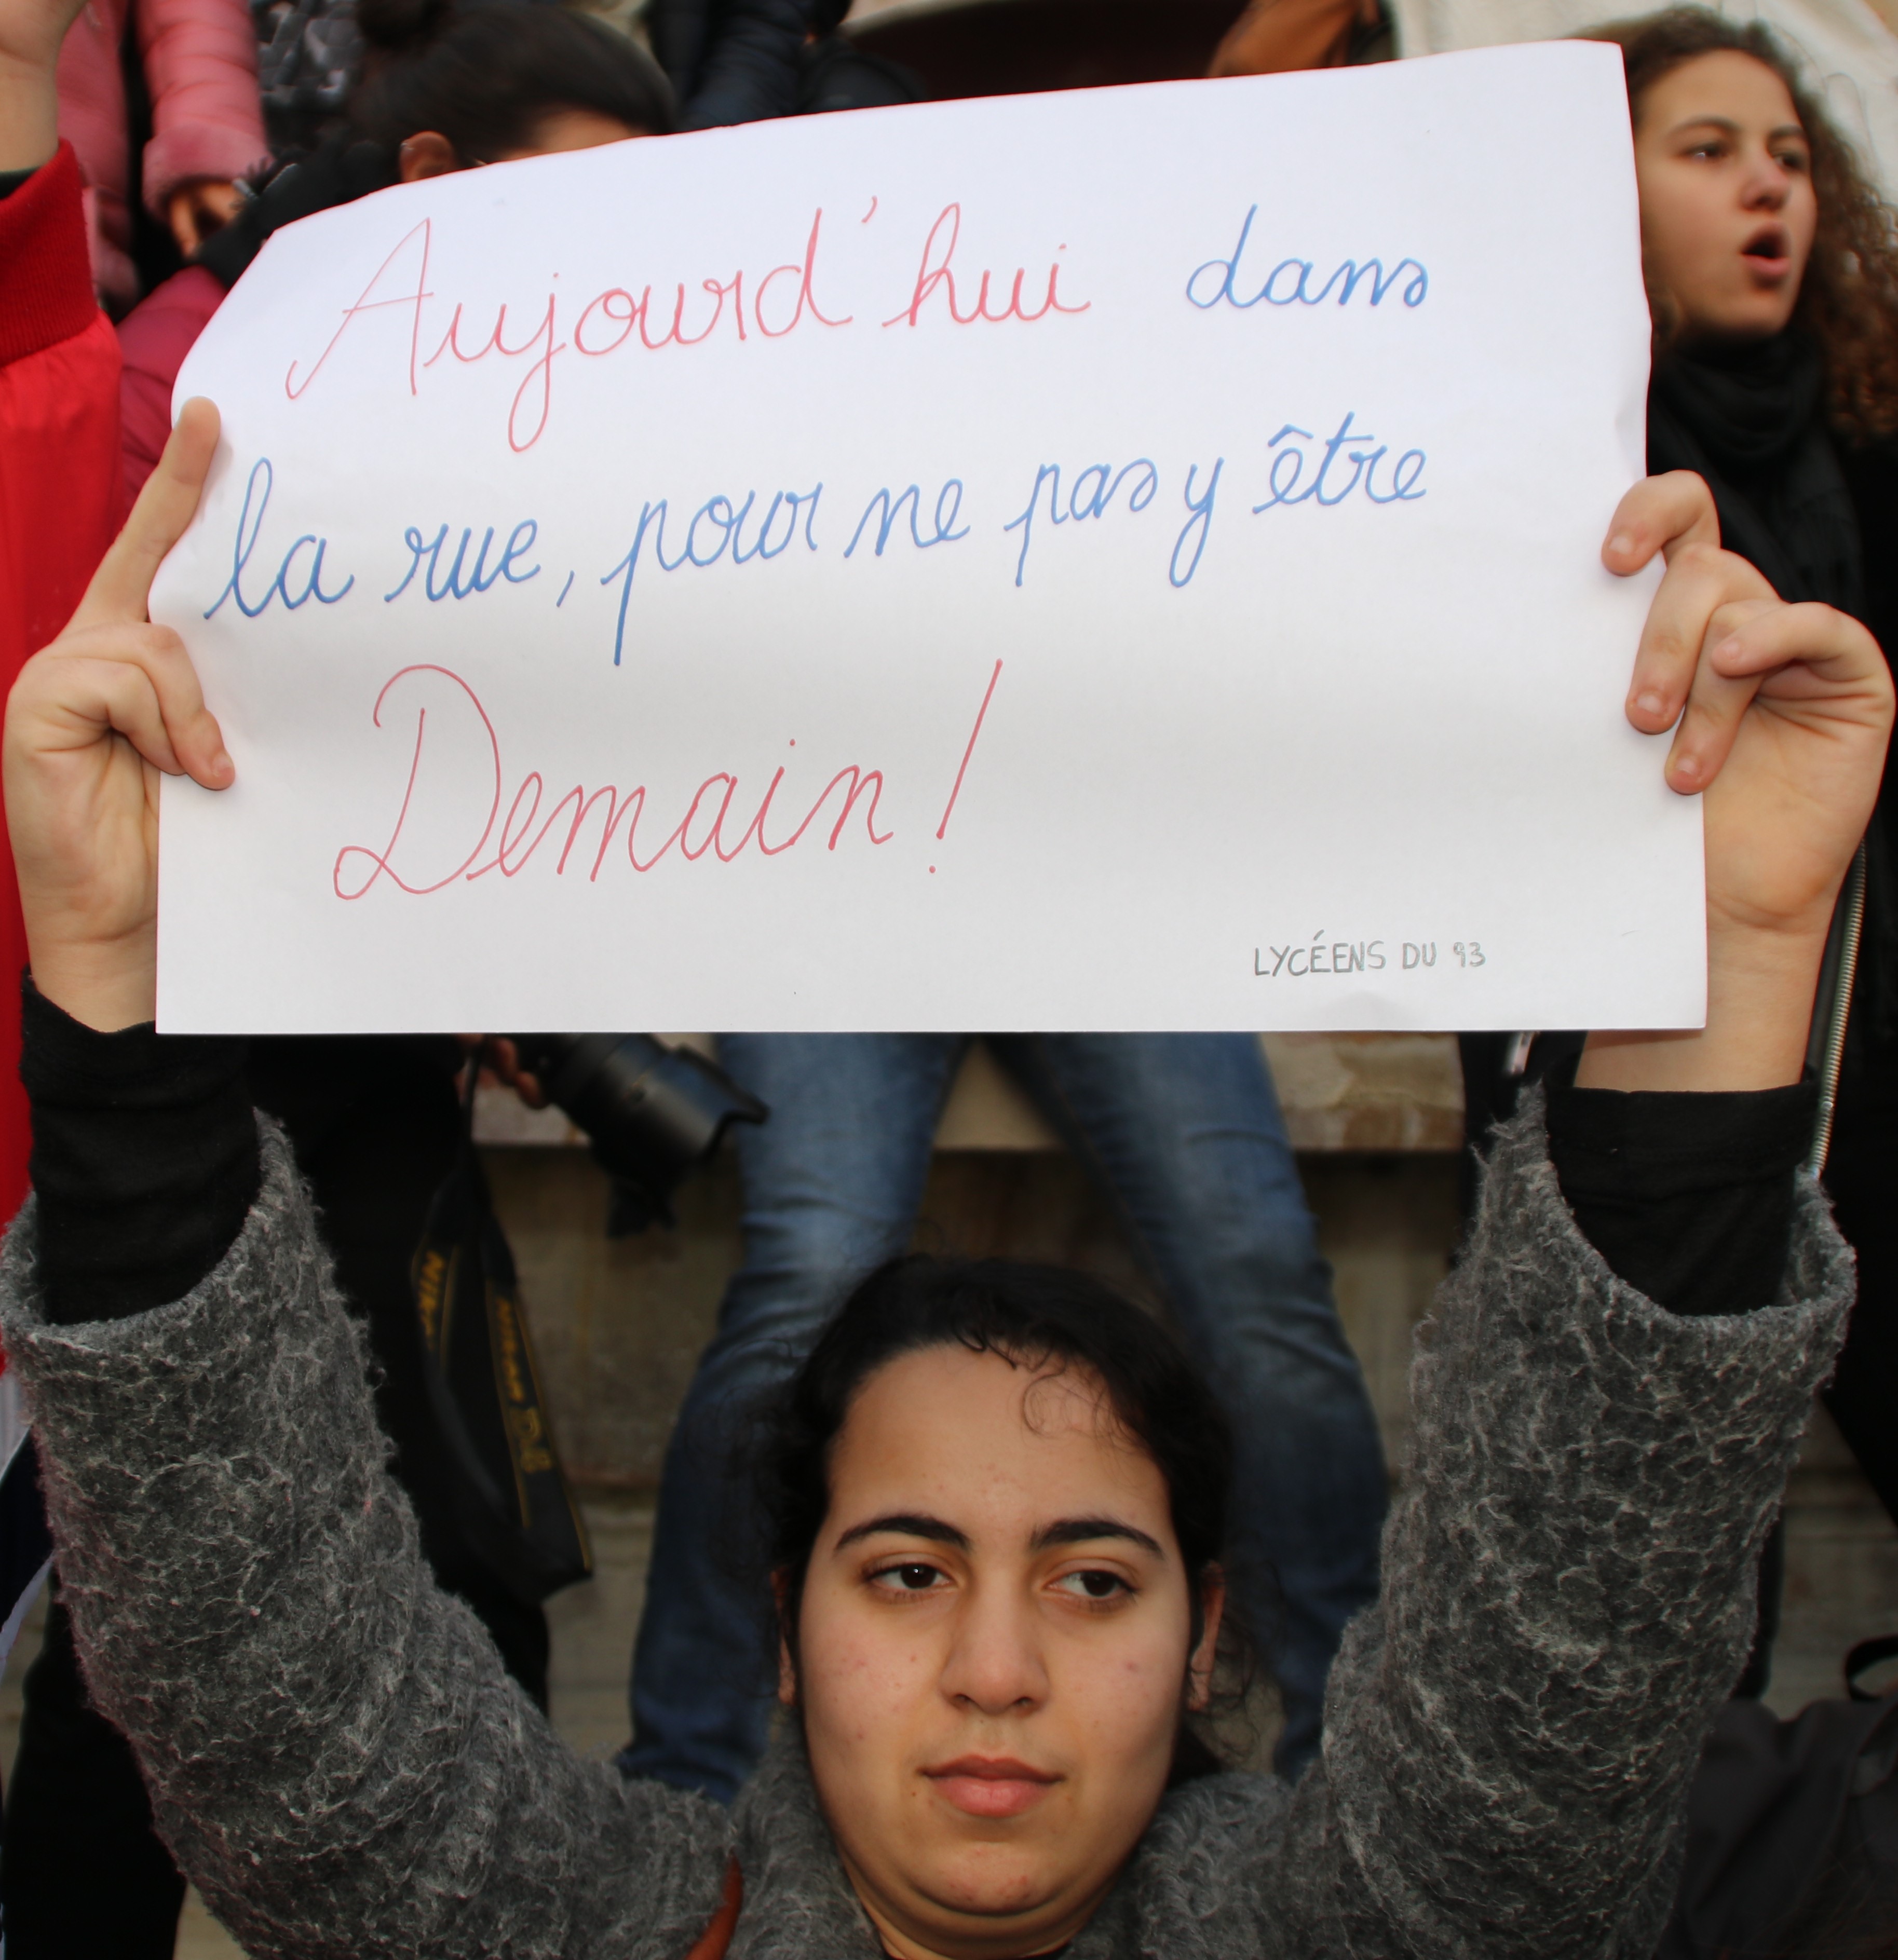 Aujourd'hui dans
la rue, pour ne pas y être
Demain!
LYCÉENS DU 93